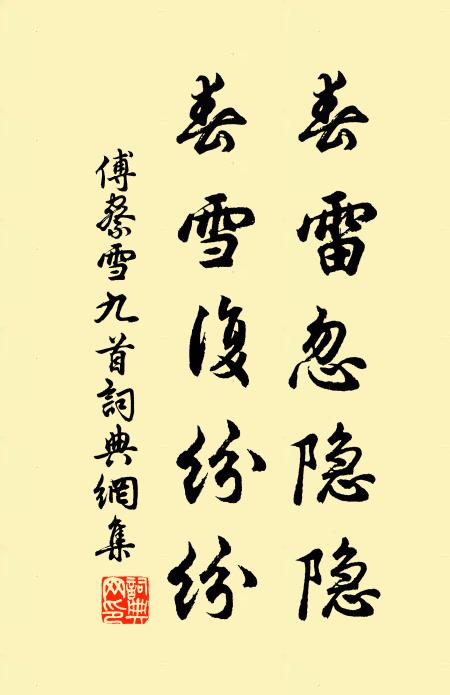 春雷忽隐隐
春雪復纷纷
傅察雪九首詞典網集
詞典网印